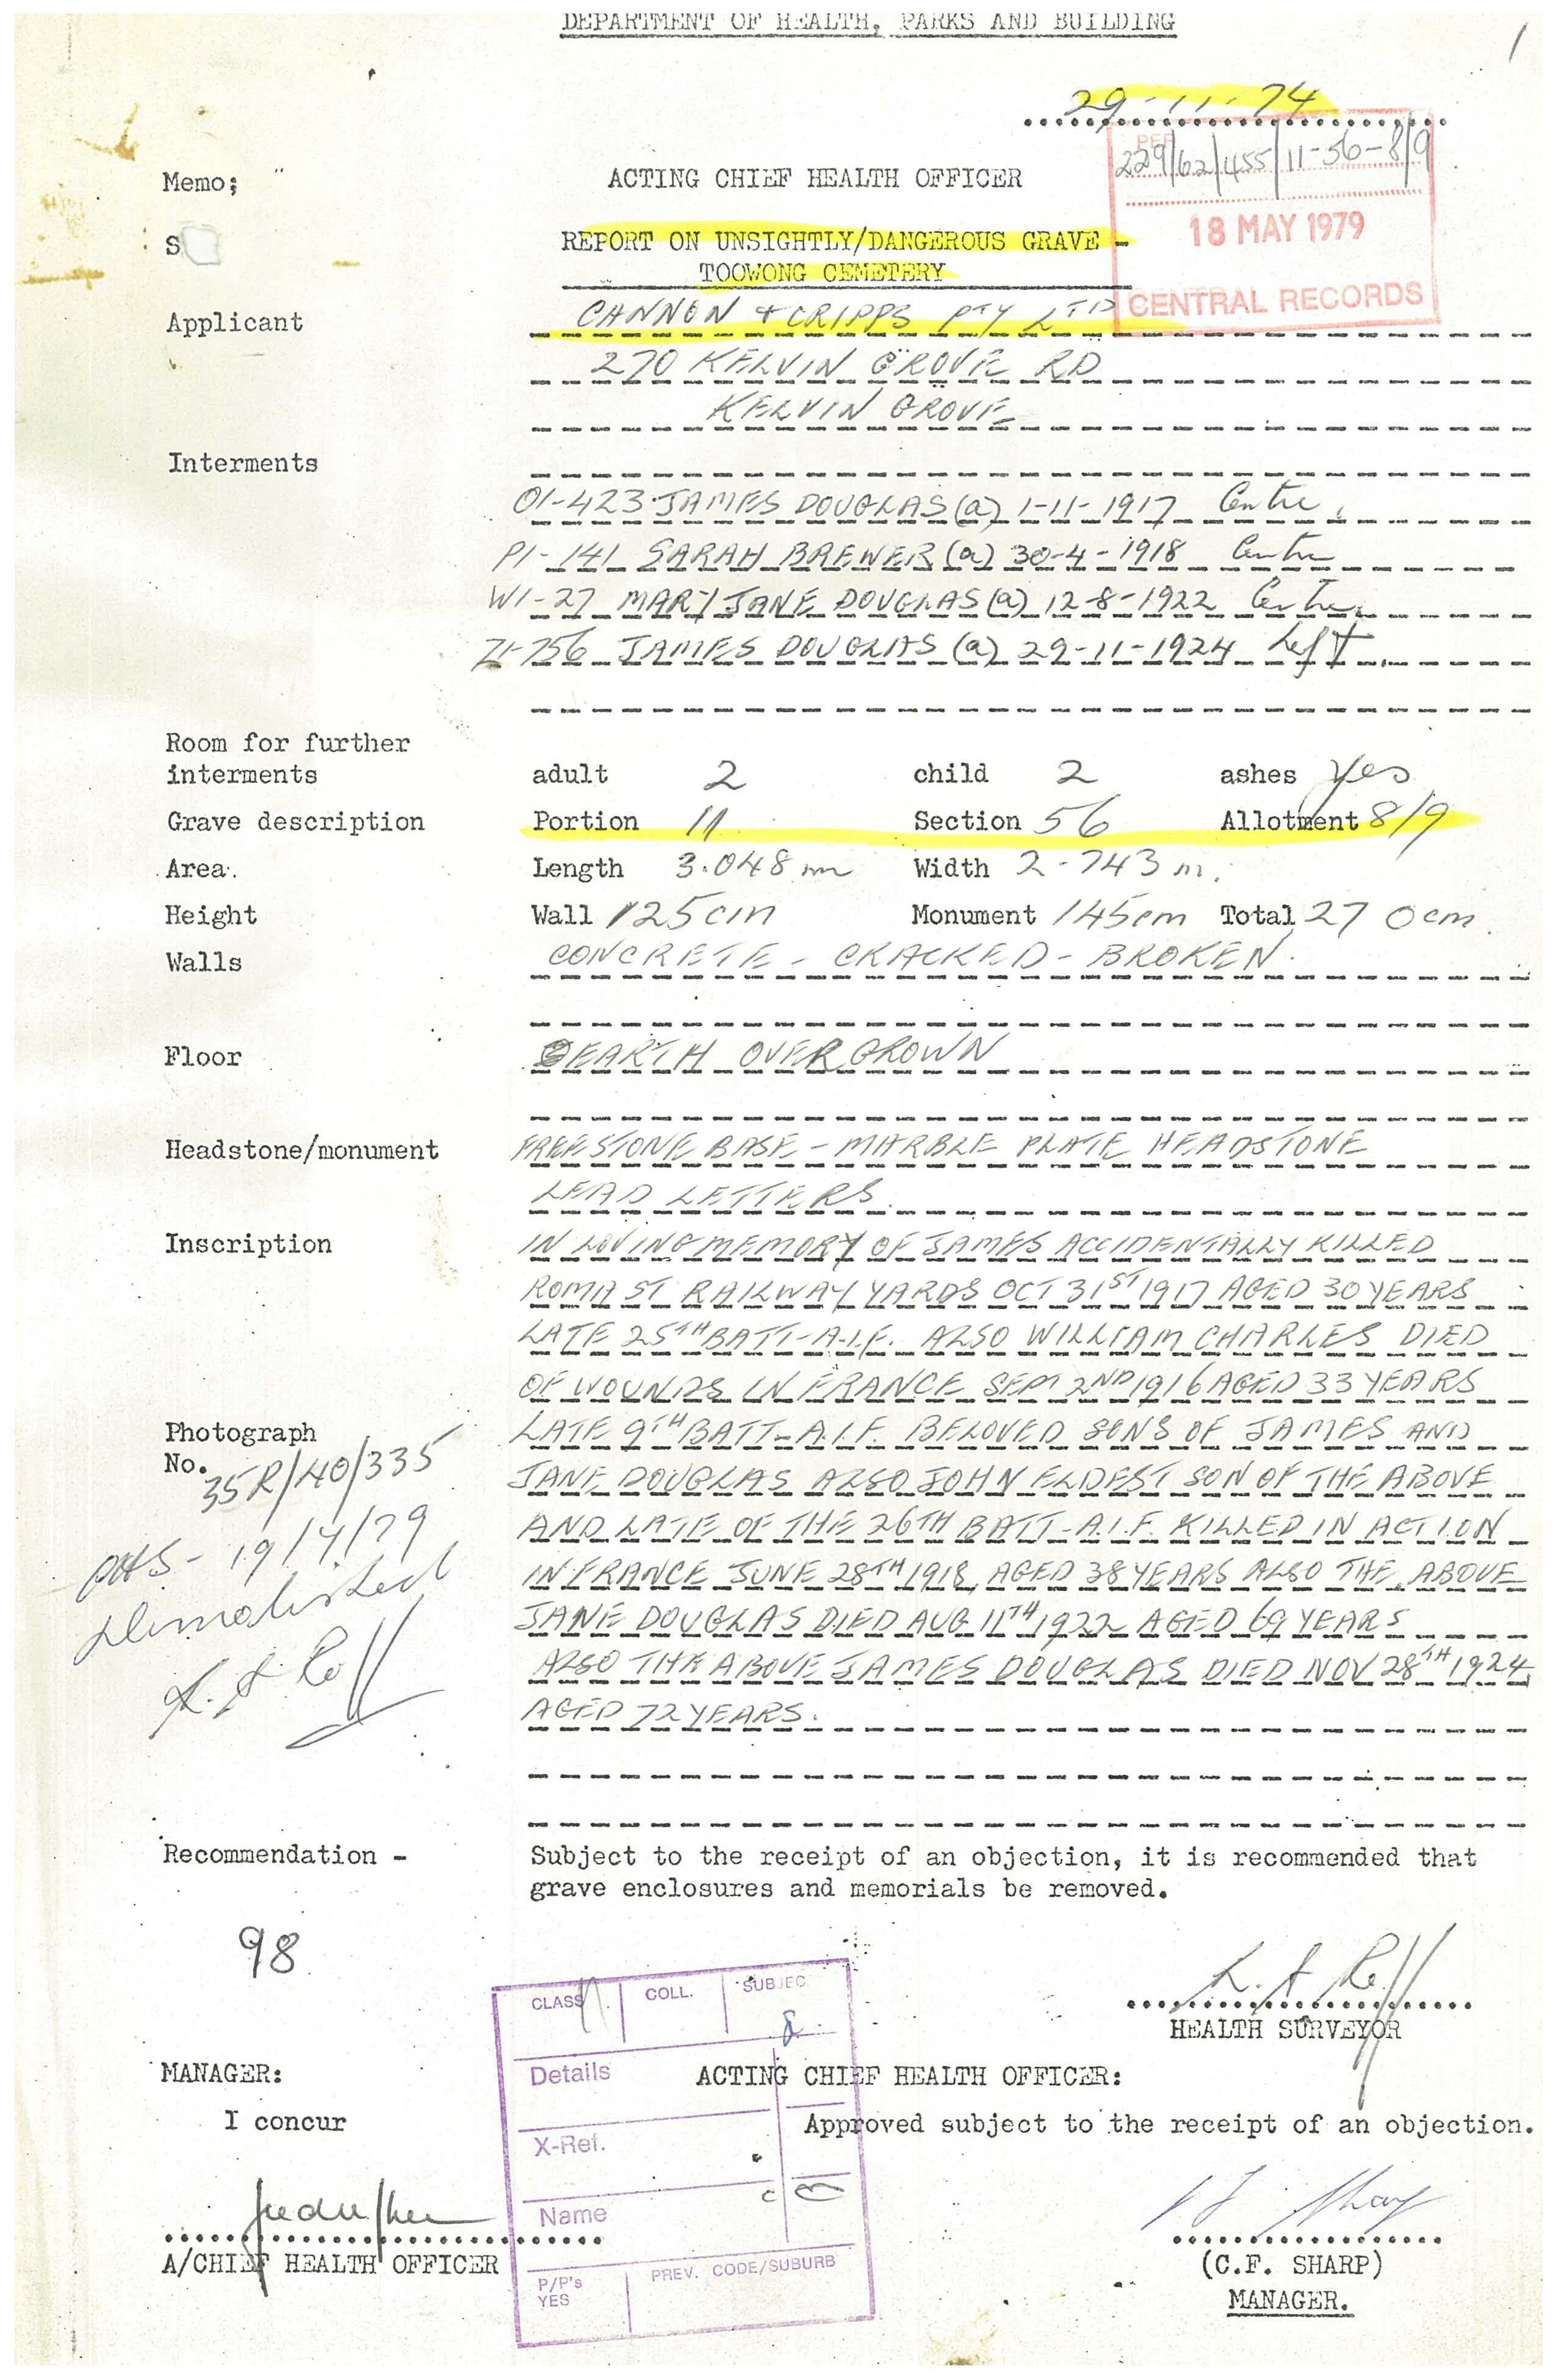 DEPARTMENT OF HEALTH, PARKS AND BUILDING
29-11-74
REF
229/62/455/11-56-8/9
18 MAY 1979
CENTRAL RECORDS
Memo; ACTING CHIEF HEALTH OFFICER
S
REPORT ON UNSIGHTLY/DANGEROUS GRAVE -
TOOWONG CEMETERY
Applicant CANNON + CRIPPS PTY LTD
270 KELVIN GROVE RD
KELVIN GROVE
Interments
O1-423 JAMES DOUGLAS (a) 1-11-1917 Centre
P1-141 SARAH BREWER (a) 30-4-1918 Centre
W1-27 MARY JANE DOUGLAS (a) 12-8-1922 Centre
Z1-756 JAMES DOUGLAS (a) 29-11-1924 Left
Room for further
interments adult 2 child 2 ashes Yes
Grave description Portion 11 Section 56 Allotment 8/9
Area. Length 3.048 m Width 2-743 m.
Height Wall 125cm Monument 145cm Total 270cm
Walls CONCRETE - CRACKED - BROKEN.
Floor EARTH OVERGROWN
Headstone/monument FREESTONE BASE - MARBLE PLATE HEADSTONE
LEAD LETTERS.
Inscription IN LOVING MEMORY OF JAMES ACCIDENTALLY KILLED
ROMA ST RAILWAY YARDS OCT 31ST 1917 AGED 30 YEARS
LATE 25TH BATT-A.I.F. ALSO WILLIAM CHARLES DIED
OF WOUNDS IN FRANCE SEPT 2ND 1916 AGED 33 YEARS
Photograph LATE 9TH BATT-A.I.F. BELOVED SONS OF JAMES AND
No. 35R/40/335 JANE DOUGLAS ALSO JOHN ELDEST SON OF THE ABOVE
AND LATE OF THE 26TH BATT-A.I.F. KILLED IN ACTION
19/4/79 IN FRANCE JUNE 28TH 1918, AGED 38 YEARS ALSO THE ABOVE
JANE DOUGLAS DIED AUG 11TH 1922 AGED 69 YEARS
ALSO THE ABOVE JAMES DOUGLAS DIED NOV 28TH 1924
AGED 72 YEARS.
Recommendation - Subject to the receipt of an objection, it is recommended that
grave enclosures and memorials be removed.
98
HEALTH SURVEYOR
CLASS COLL. SUBJEC
8
Details
MANAGER: ACTING CHIEF HEALTH OFFICER:
I concur Approved subject to the receipt of an objection.
X-Ref.
Name
A/CHIEF HEALTH OFFICER (C.F. SHARP)
MANAGER.
P/P's
YES
PREV. CODE/SUBURB